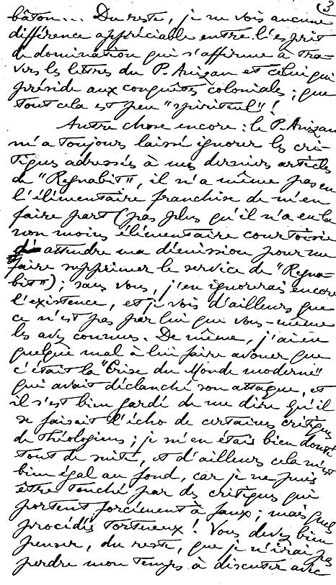 (3
bâton... Du reste, je ne vois aucune
différence appréciable entre l'esprit
de domination qui s'affirme à tra-
vers les lettres du P. Anizan et celui qui
préside aux conquêtes coloniales ; que
tout cela est peu "spirituel" !
Autre chose encore : le P. Anizan
m'a toujours laissé ignorer les cri-
tiques adressées à mes derniers articles
de "Regnabit", il n'a même pas eu
l'élémentaire franchise de m'en
faire part (pas plus qu'il n'a eu la
non moins élémentaire courtoisie
d'attendre ma démission pour me
faire supprimer le service de "Regna-
bit") ; sans vous, j'en ignorerais encore
l'existence, et je vois d'ailleurs que
ce n'est pas par lui que vous-même
les avez connues. De même, j'ai eu
quelque mal à lui faire avouer que
c'était la "Crise du Monde moderne"
qui avait déclanché son attaque, et
il s'est bien gardé de me dire qu'il
se faisait l'écho de certaines critiques
de théologiens ; je m'en étais bien douté
tout de suite, et d'ailleurs cela m'est
bien égal au fond, car je ne puis
être touché par des critiques qui
portent forcément à faux ; mais quels
procédés tortueux ! Vous devez bien
penser, du reste, que je n'irai pas
perdre mon temps à discuter avec